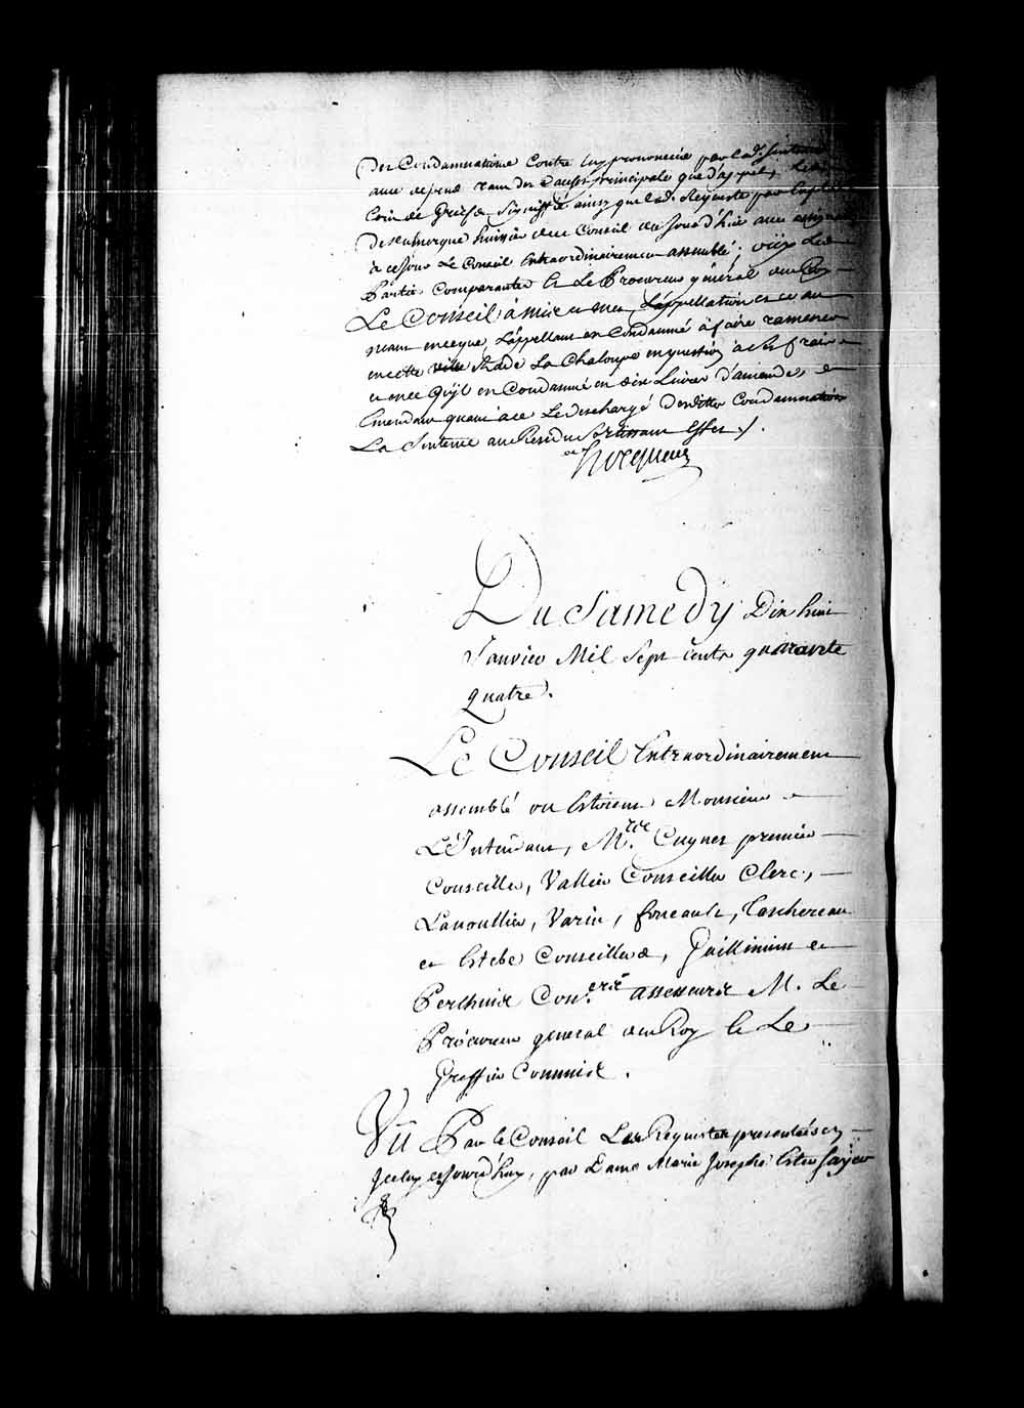 Des Condamnations Contre luy prononcées par lad. Sentence
avec depens tant des Causes principale que d'appel,
de Griefs Signiffié ainsy que lad. Requeste par
huissier au Conseil du Jourd'huy avec assignation
a cejour Le Conseil Extraordinairement assemblé; oüy Les
Parties Comparantes et Le Procureur general du Roy
Le Conseil à mis et met, L'appellation et ce au
neant en ce que, L'appellant est Condamné à faire ramener
en cette ville La Chaloupe en question à ses frais
et en ce qu'il est Condamné en dix Livres d'amende,
Emendant quant à ce Le decharge desdittes Condamnations
La Sentence au Residu Sortissant Effet ./.
Hocquart
Du Samedy Dix huit
Janvier Mil Sept Cents quarante
quatre.
Le Conseil Extraordinairement
assemblé ou Etoient Monsieur
L'Intendant, M.tre Cugnet premier
Conseiller, Vallier Conseiller Clerc,
Lanoullier, Varin, foucault, Taschereau
et Estebe Conseillers, Guillimin et
Perthuis Con.ers assesseurs M. Le
Procureur general du Roy et Le
Greffier Commis.
Vû Par le Conseil Les Requestes presentées en
Iceluy cejourd'huy, par Dame Marie Josephe